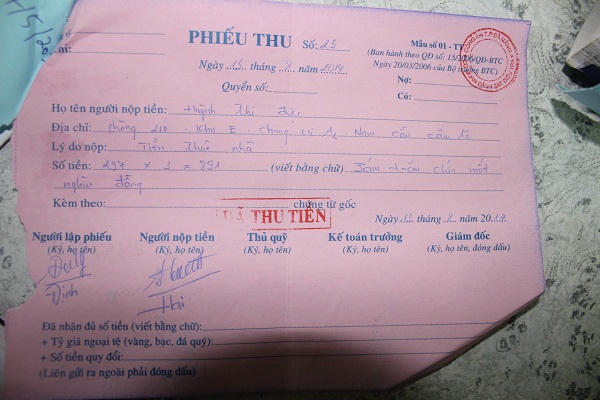 PHIẾU THU Số: 23
Mẫu số 01 - TT
(Ban hành theo QĐ số: 15/2006/QĐ-BTC
Ngày 20/03/2006 của Bộ trưởng BTC)
Ngày 15 tháng 7 năm 2014
Quyển số:
Nợ:
Có:
Họ tên người nộp tiền: Huỳnh Thị
Địa chỉ: Phòng 210 - Khu E - Chung cư Nam cầu Cẩm lệ
Lý do nộp: Tiền Thuê nhà
Số tiền: 297 x 3 = 891 (viết bằng chữ) Tám trăm chín mốt
nghìn đồng
Kèm theo: chứng từ gốc
ĐÃ THU TIỀN
Ngày 15 tháng 2014
Người lập phiếu Người nộp tiền Thủ quỹ Kế toán trưởng Giám đốc
(Ký, họ tên) (Ký, họ tên) (Ký, họ tên) (Ký, họ tên) (Ký, họ tên, đóng dấu)
Định Hai
Đã nhận đủ số tiền (viết bằng chữ):
+ Tỷ giá ngoại tệ (vàng, bạc, đá quý):
+ Số tiền quy đổi:
(Liên gửi ra ngoài phải đóng dấu)